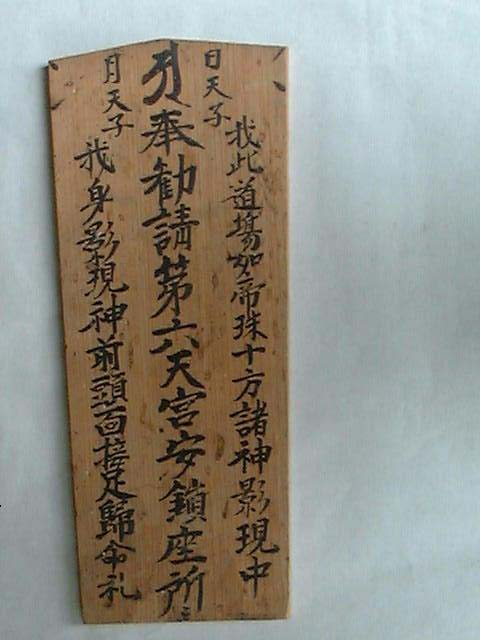 日天子
我此道場如帝珠十方諸神影現中
奉勧請第六天宮安鎮座所
月天子
我身影現神前頭面接足歸命礼